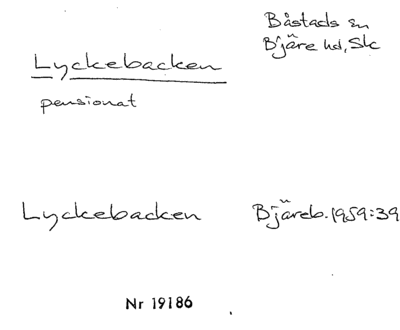 Båstads sn
Bjäre hd, Sk
Lyckebacken
pensionat
Lyckebacken Bjäreb. 1959:39
Nr 19186